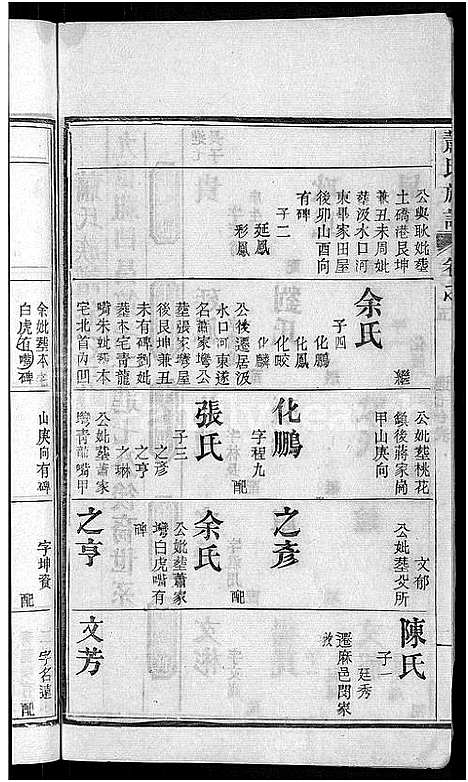 蕭氏族譜
公與耿妣塟
土礄港艮坤
兼丑未周妣
塟汲水口河
東畢家田屋
後卯山酉向
有碑
子二
廷鳳
彤鳳
余氏
繼
子四
化鵬
化鳳
化咬
化麟
公後遷居汲
水口河東遂
名蕭家塆公
塟張家塆屋
後艮坤兼丑
未有碑劉妣
塟本宅青龍
嘴余妣塟本
宅北首內凹
公妣塟桃花
鎖後蔣家崗
甲山庚向
化鵬
字程九
張氏
配
子三
之彥
之亨
之琳
公妣塟蕭家
塆青龍嘴甲
文郁
公妣塟殳所
之彥
余氏
配
公妣塟蕭家
塆白虎嘴有
碑
之亨
陳氏
子一
廷秀
遷麻邑閔家
文芳
余妣塟本宅
白虎有嘴碑
山庚向有碑
字坤資
配
字名遠
配